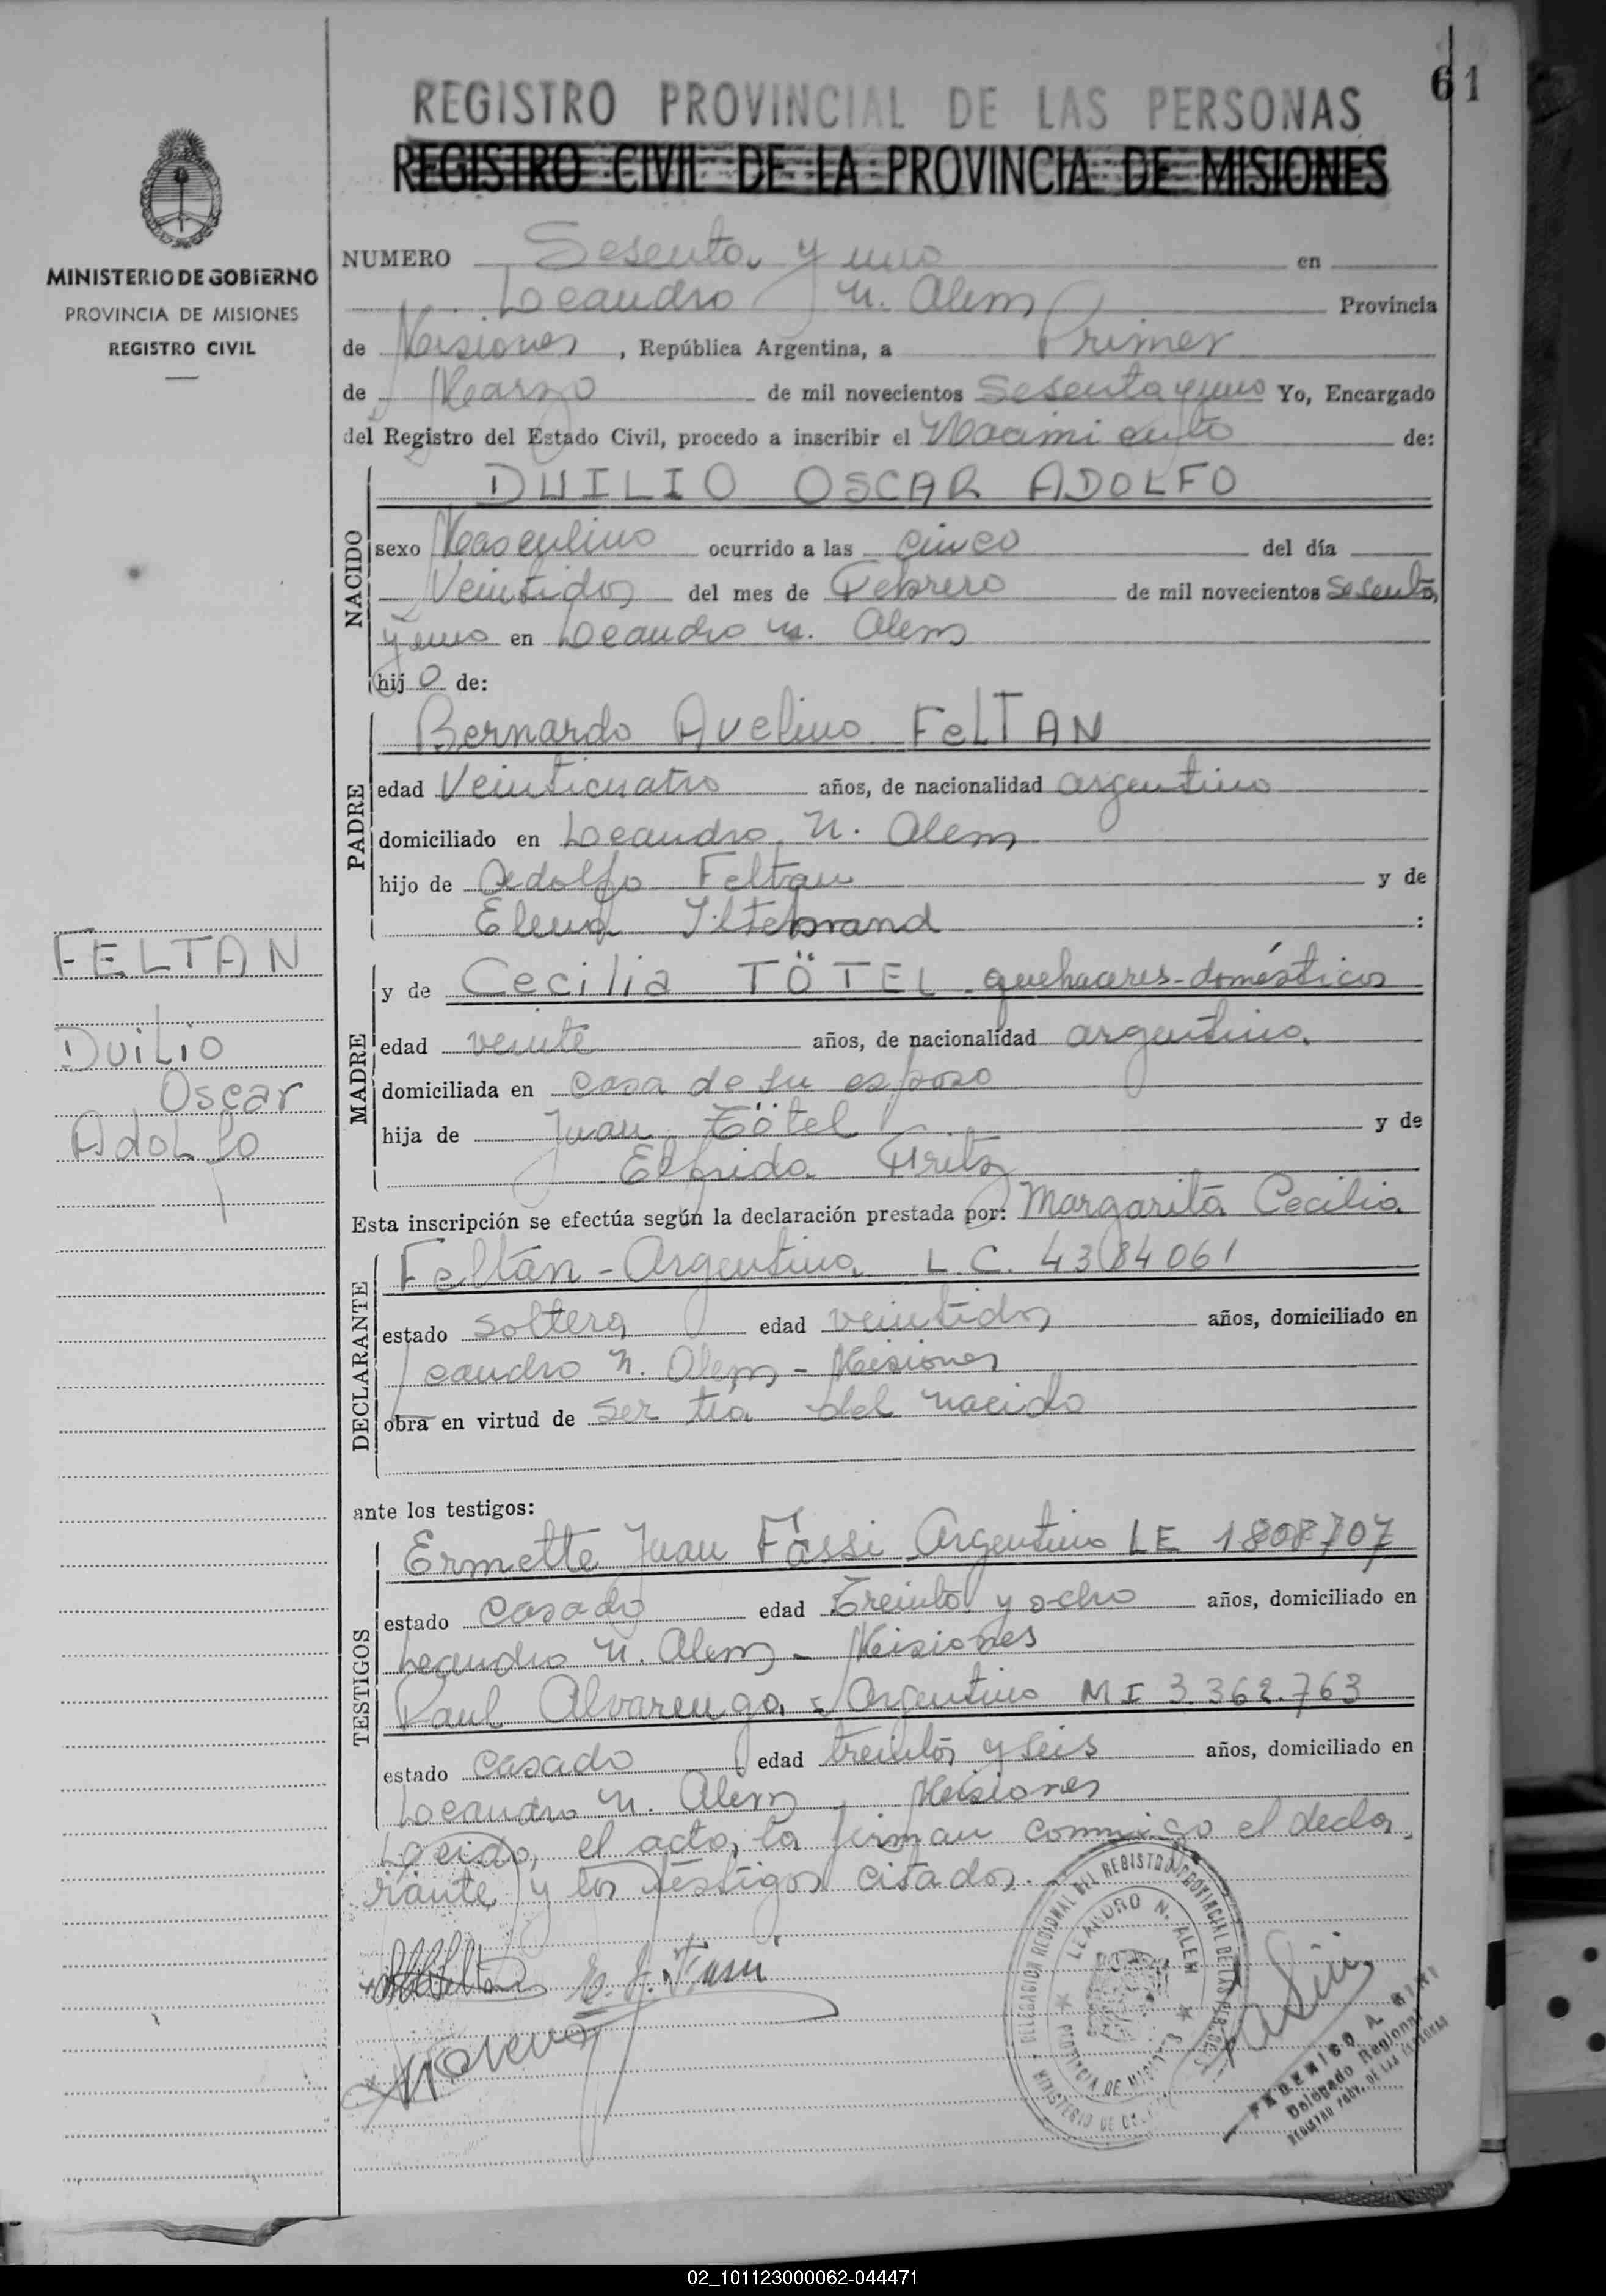 61
REGISTRO PROVINCIAL DE LAS PERSONAS
REGISTRO CIVIL DE LA PROVINCIA DE MISIONES
MINISTERIO DE GOBIERNO
PROVINCIA DE MISIONES
REGISTRO CIVIL
NUMERO Sesenta y uno en
Leandro N. Alem Provincia
de Misiones, República Argentina, a Primer
de Marzo de mil novecientos Sesenta y uno Yo, Encargado
del Registro del Estado Civil, procedo a inscribir el Nacimiento de:
NACIDO
DUILIO OSCAR ADOLFO
sexo Masculino ocurrido a las cinco del día
Veintidos del mes de Febrero de mil novecientos Sesenta
y uno en Leandro N. Alem
hijo de:
PADRE
Bernardo Avelino FelTAN
edad Veinticuatro años, de nacionalidad argentino
domiciliado en Leandro N. Alem
hijo de Adolfo Feltan y de
Elena Iltebrand :
FELTAN
Duilio
Oscar
Adolfo
MADRE
y de Cecilia TÖTEL quehaceres-domésticos
edad veinte años, de nacionalidad argentina
domiciliada en casa de su esposo
hija de Juan Tötel y de
Elfrida Fritz
Esta inscripción se efectúa según la declaración prestada por: Margarita Cecilia
DECLARANTE
Feltán - Argentina L.C. 4384061
estado soltera edad veintidos años, domiciliado en
Leandro N. Alem - Misiones
obra en virtud de ser tía del nacido
ante los testigos:
TESTIGOS
Ermette Juan Fassi Argentino LE 1808707
estado casado edad Treinta y ocho años, domiciliado en
Leandro N. Alem - Misiones
Raul Alvarenga - Argentino MI 3.362.763
estado casado edad treinta y seis años, domiciliado en
Leandro N. Alem, Misiones
Leido, el acta, la firman conmigo el decla
rante y los testigos citados.
E. J. Fassi
DELEGACION REGIONAL DEL REGISTRO PROVINCIAL DE LAS PERSONAS
LEANDRO N. ALEM
PROVINCIA DE MISIONES
MINISTERIO DE
FEDERICO A.
Delegado Regional
REGISTRO PROV. DE LAS PERSONAS
02_101123000062-044471